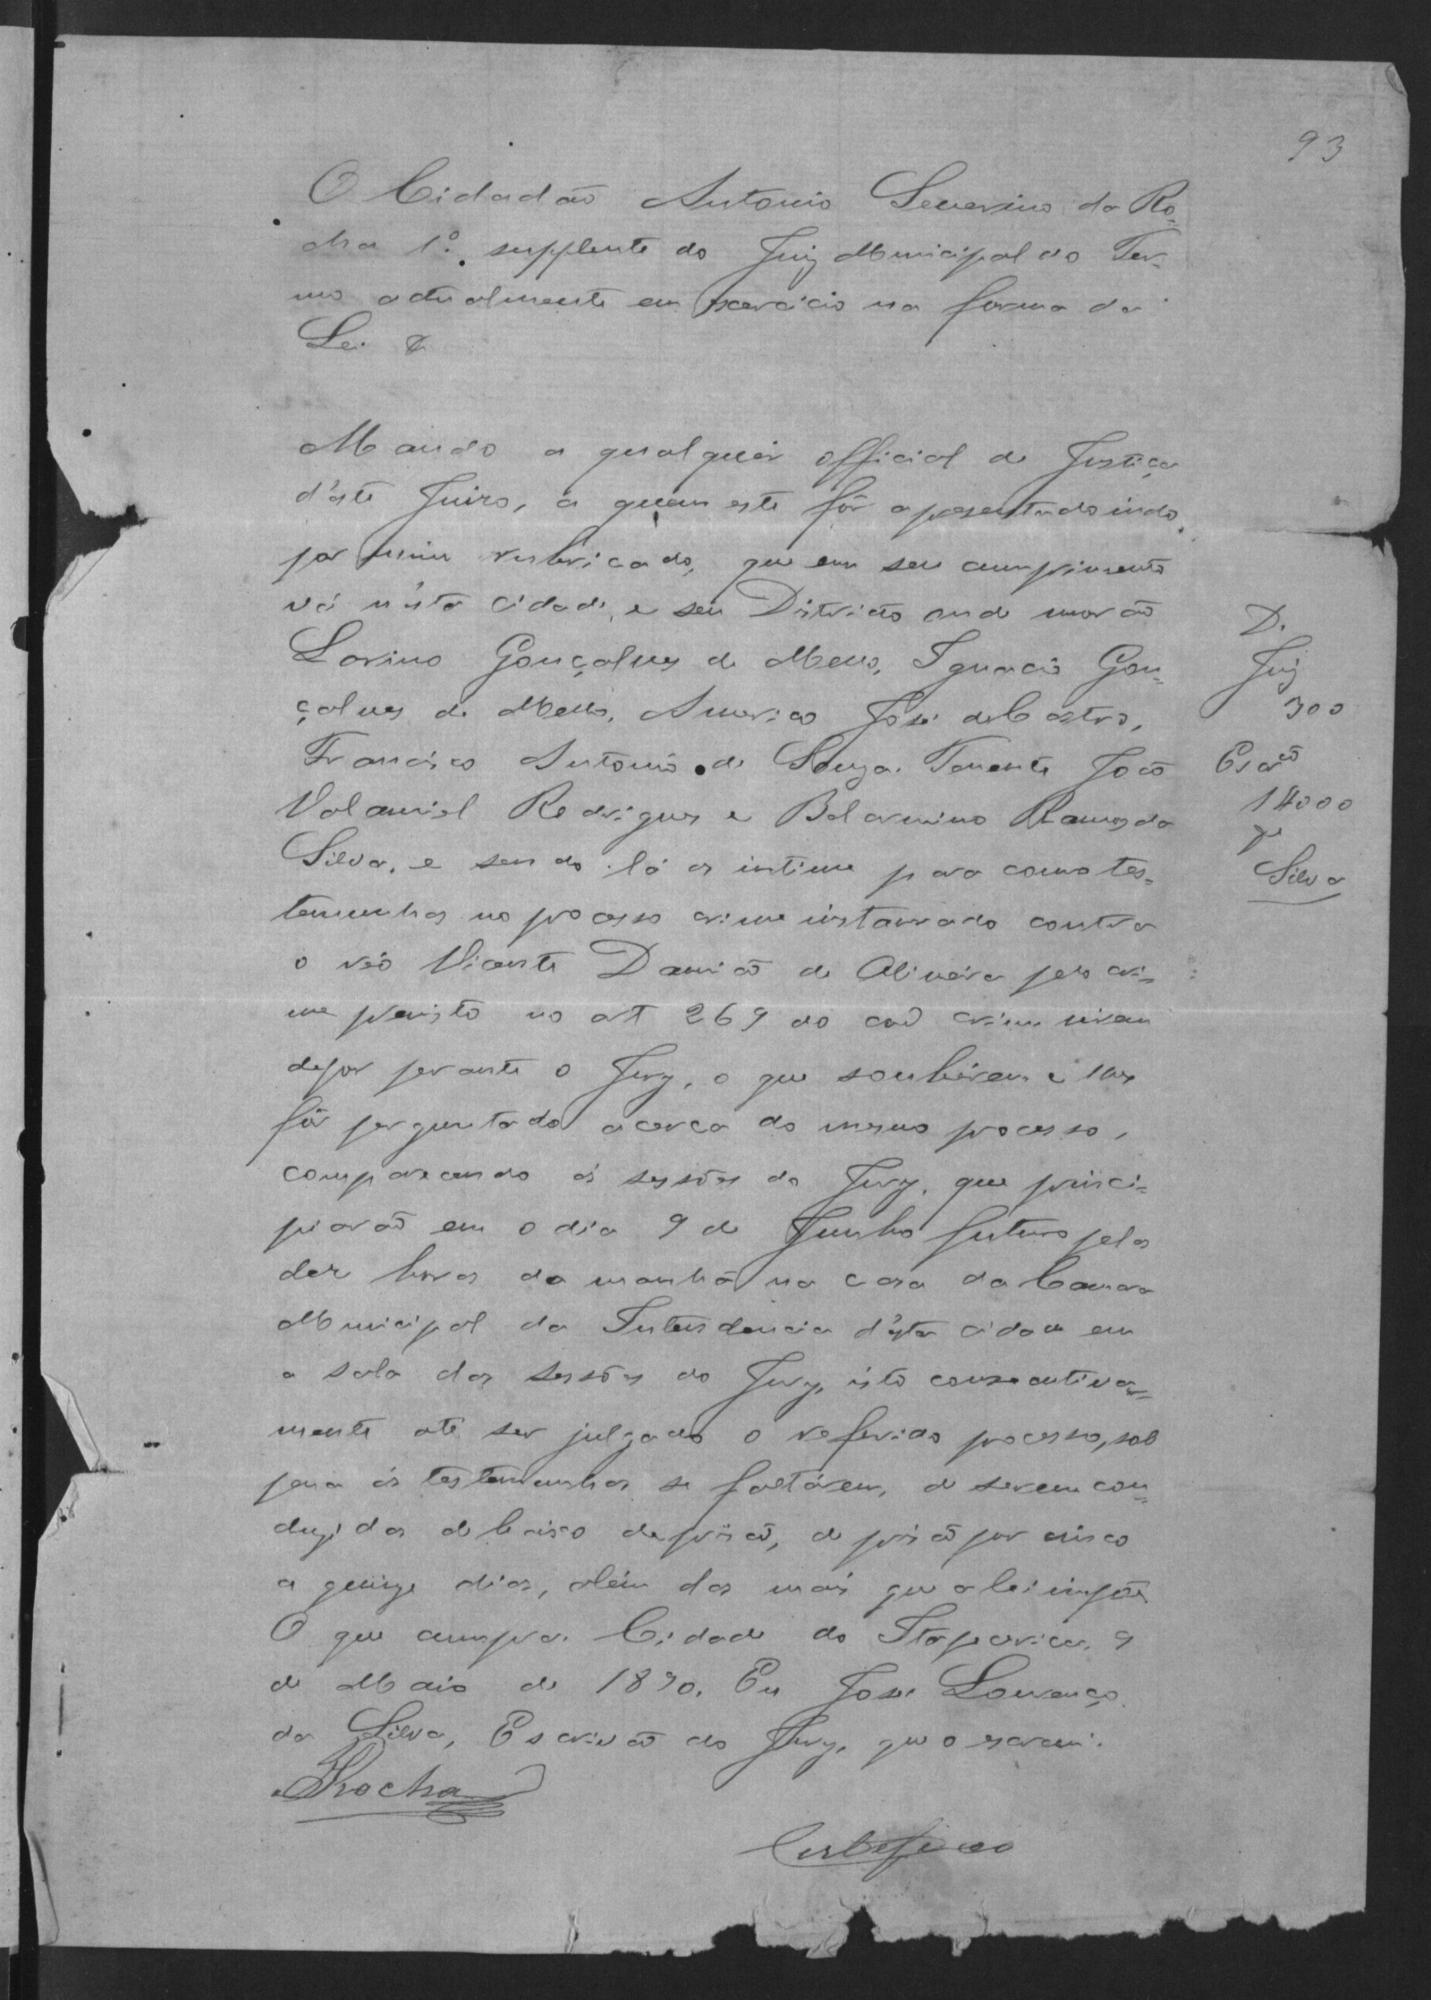 93
O Cidadão Antonio Severino da Ro-
cha 1º. supplente do Juiz Municipal do Ter-
mo actualmente em exercicio na forma da
Lei &
Mando a qualquer official de Justiça
d'este Juizo, a quem este fôr apresentado indo
por mim rubricado, que em seu cumprimento
vá n'esta cidade, e seu Districto onde morão
Gonçalves de Mello, Ignacio Gon-
çalves de Mello, Americo José de Castro,
Francisco Antonio de Souza, Tenente João
Rodrigues e Belarmino Ramos da
Silva, e sendo lá os intime para como tes-
temunhas no processo crime instaurado contra
o réo Vicente Damião de Oliveira pelo cri-
me previsto no art 269 do cod crim virem
depor perante o Jury, o que souberem e lhes
fôr perguntado acerca do mesmo processo,
comparecendo ás sessões do Jury, que princi-
piarão em o dia 9 de Junho futuro pelas
dez horas da manhã na casa da Camara
Municipal da Intendencia d'esta cidade em
a sala das sessões do Jury, isto consecutiva-
mente até ser julgado o referido processo, sob
pena ás testemunhas se faltárem, de serem con-
duzidas debaixo de prisão, de prisão por cinco
a quinze dias, alêm das mais que a lei impõe
O que cumpra. Cidade de Itapecerica, 9
de Maio de 1890. Eu José Lourenço
da Silva, Escrivão do Jury, que o escrevi.
Rocha
Certefico
D.
Juiz
300
Escão
14000
Silva